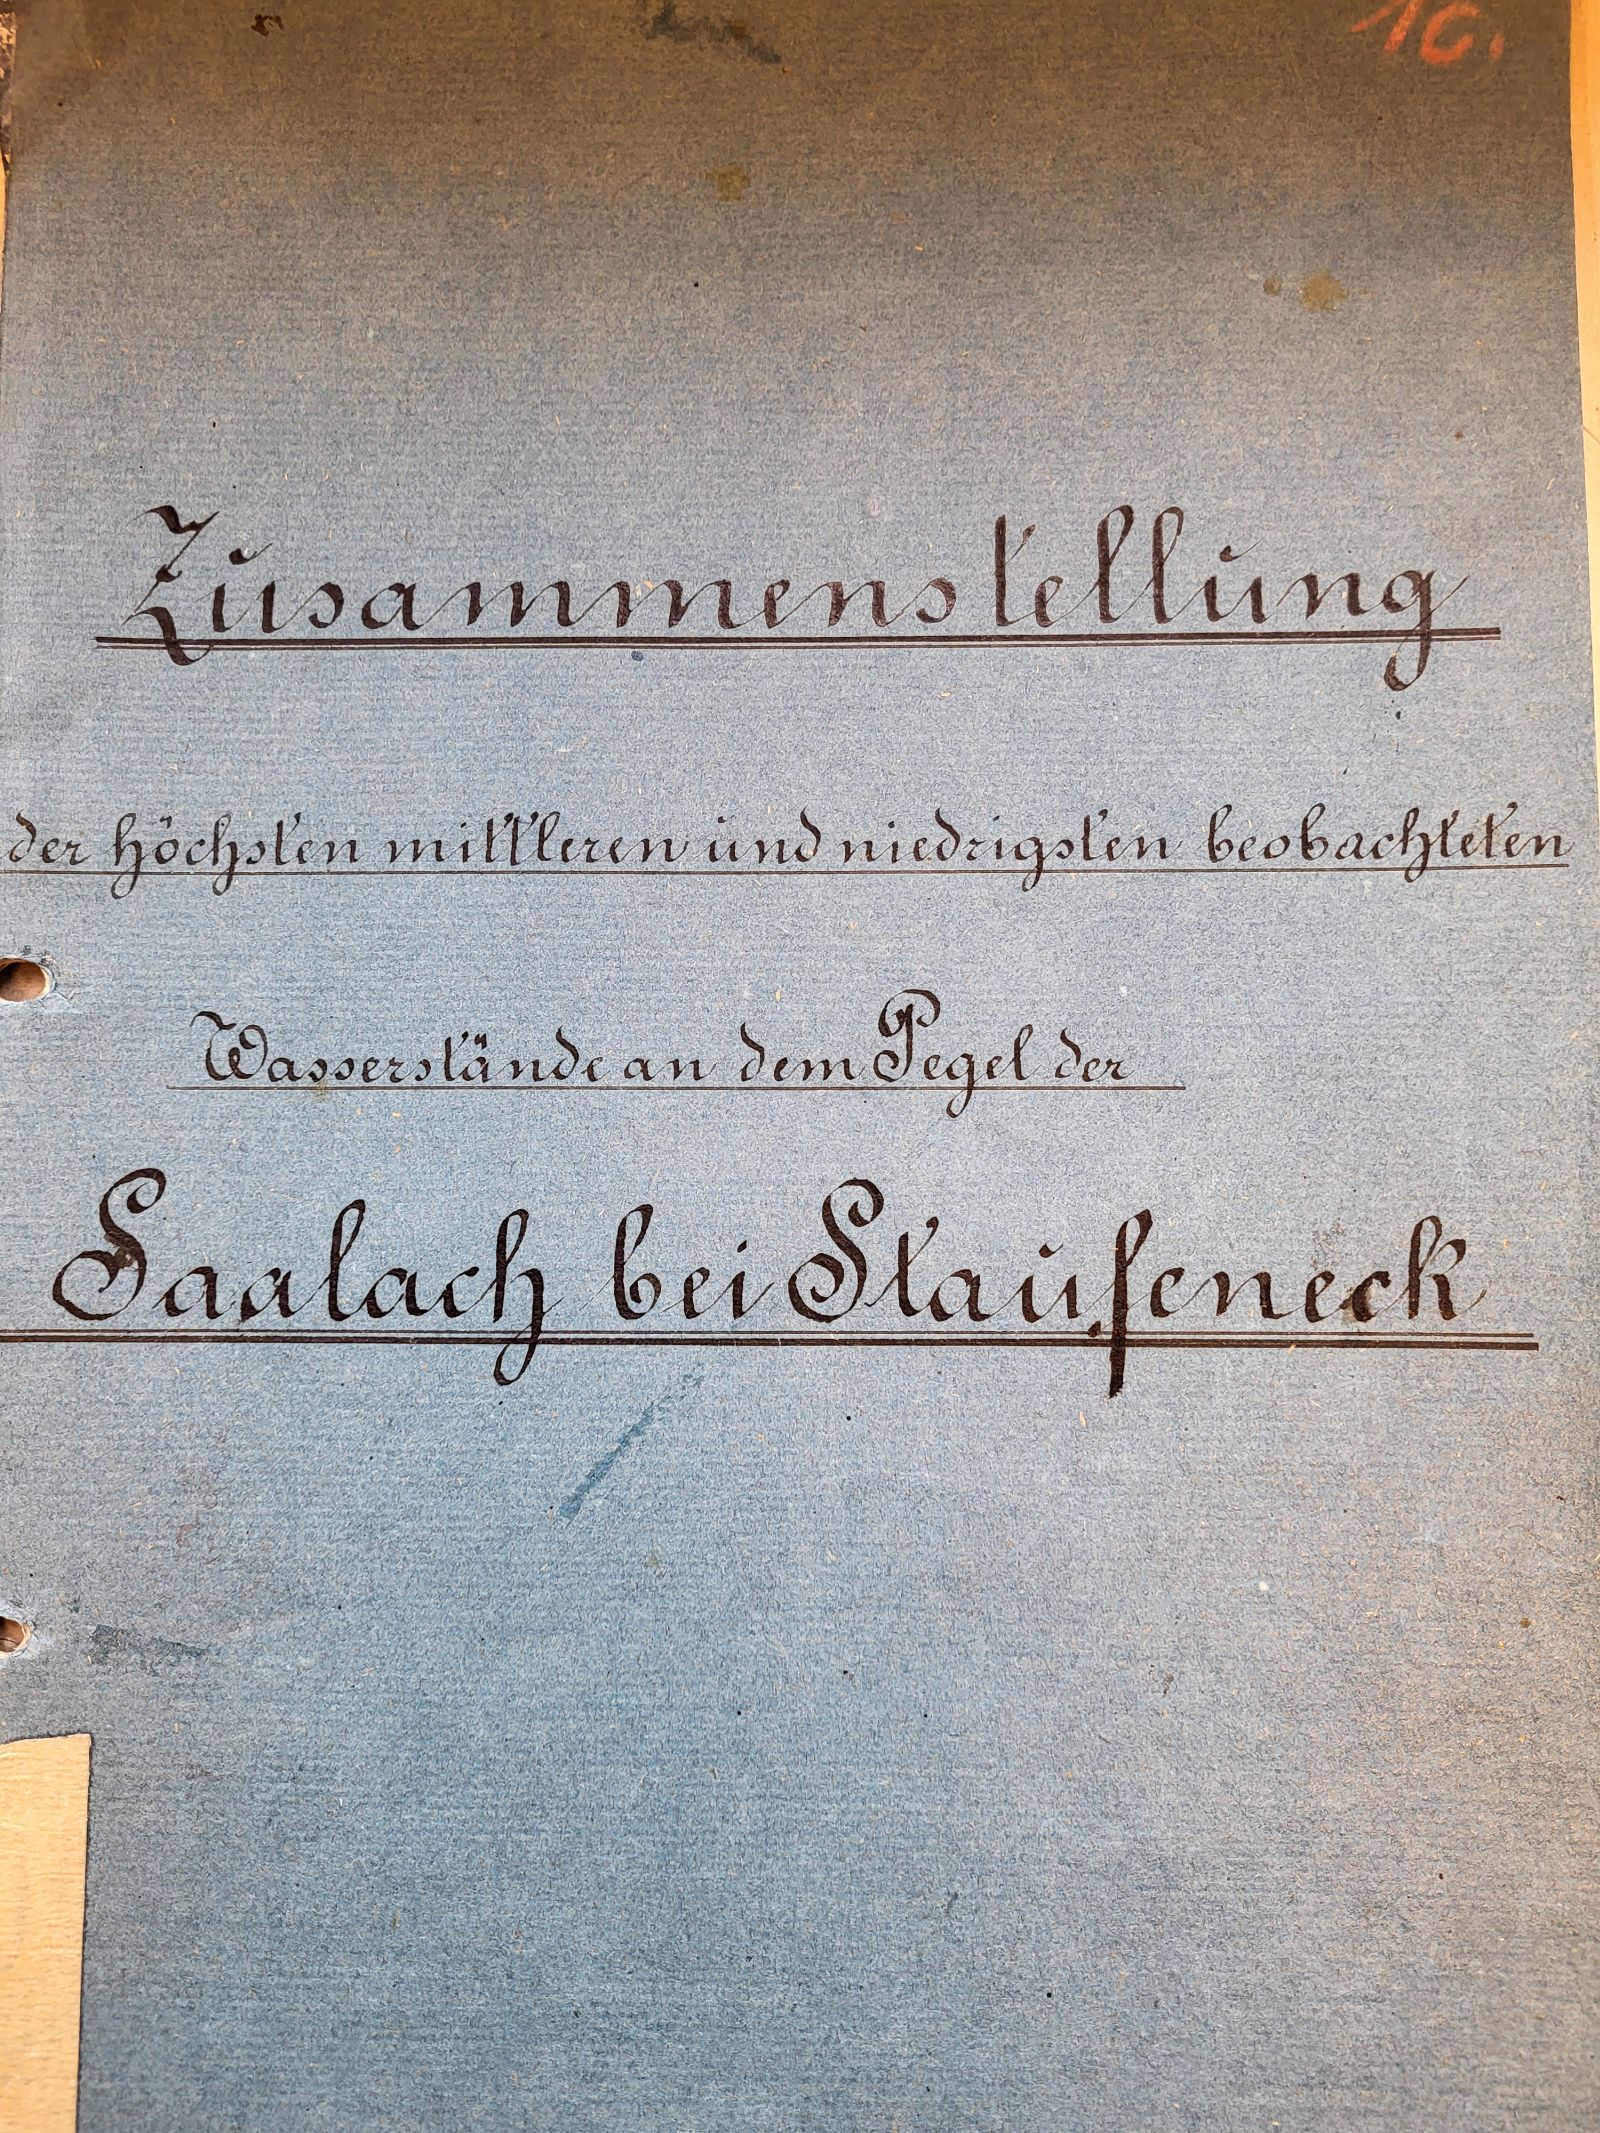 10.
Zusammenstellung
der höchsten mittleren und niedrigsten beobachteten
Wasserstände an dem Pegel der
Saalach bei Staufeneck